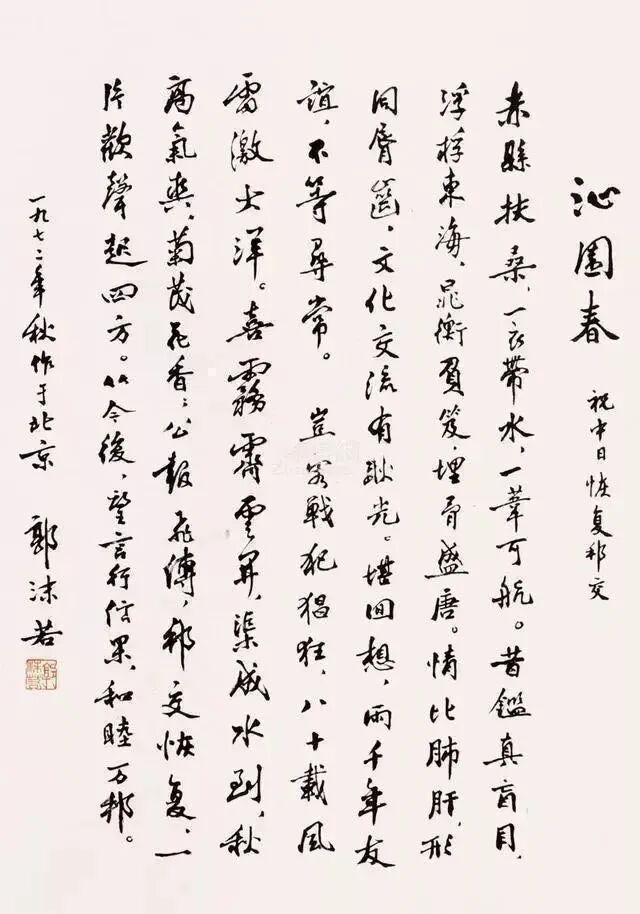 沁園春
祝中日恢复邦交
赤縣扶桑，一衣帶水，一葦可航。昔鑑真盲目，
浮桴東海，晁衡負笈，埋骨盛唐。情比肺肝，形
同脣齒，文化交流有耿光。堪回想，兩千年友
誼，不等尋常。 豈容戰犯猖狂，八十載風
雷激大洋。喜霧霽雲開，渠成水到，秋
高氣爽，菊茂花香；公報飛傳，邦交恢复，一
片歡聲起四方。从今後，望言行信果，和睦万邦。
一九七二年秋作于北京 郭沫若